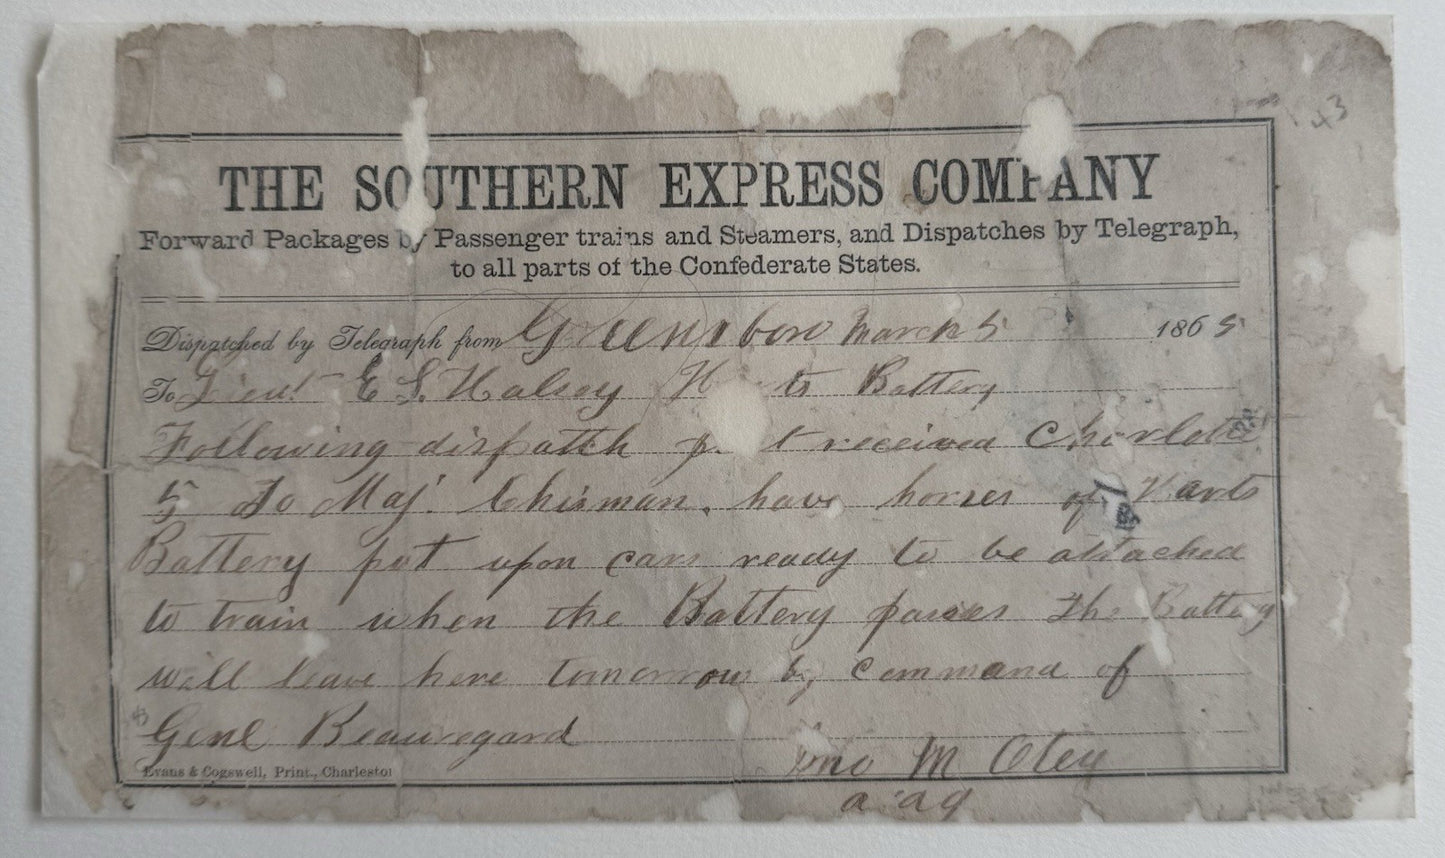 43
THE SOUTHERN EXPRESS COMPANY
Forward Packages by Passenger trains and Steamers, and Dispatches by Telegraph,
to all parts of the Confederate States.
Dispatched by Telegraph from Greensboro March 5 1865
To Lieut E S. Halsey Battery
Following dispatch received Charlotte
5 To Maj. Chisman. have horses of Harts
Battery put upon cars ready to be attached
to train when the Battery passes The Battery
will leave here tomorrow by command of
Genl Beauregard
Jno M Otey
a a g
Evans & Cogswell, Print., Charleston